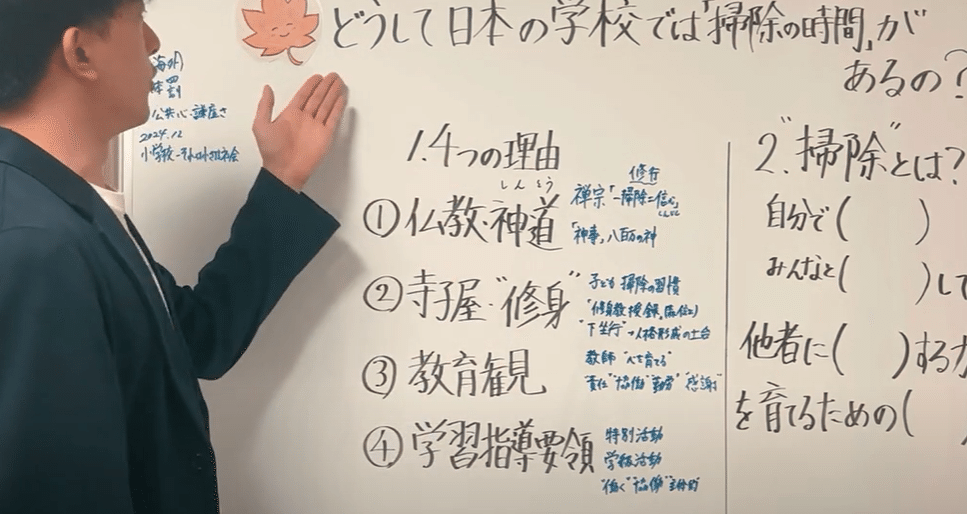 どうして日本の学校では「掃除の時間」が
あるの?
海外
公共心・謙虚さ
2024.12
小学校〜それは小さな社会
1.4つの理由
しんとう
①仏教・神道
修行
禅宗「一掃除二信心」
しんじん
「神事」八百万の神
②寺子屋・"修身"
子ども 掃除の習慣
「修身教授録」
"下坐行"→人格形成の土台
③教育観
教師 "人を育てる"
責任 "協働" "勤労" "感謝"
④学習指導要領
特別活動
学級活動
"働く" "協働"
2."掃除"とは?
自分で( )
みんなと( )して
他者に( )する力
を育てるための(